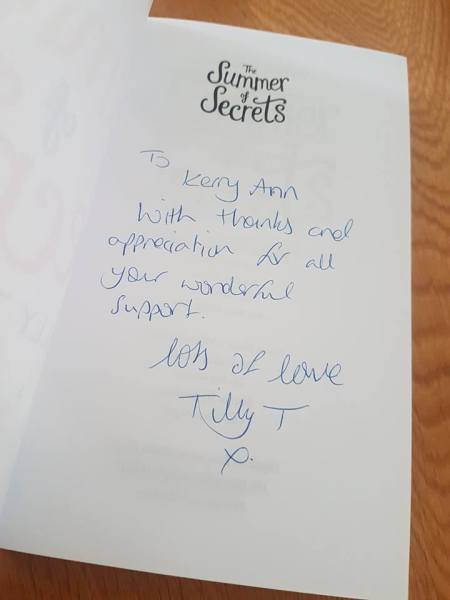 The
Summer
of
Secrets
To
Kerry Ann
With thanks and
appreciation for all
your wonderful
support.
lots of love
Tilly T
x.